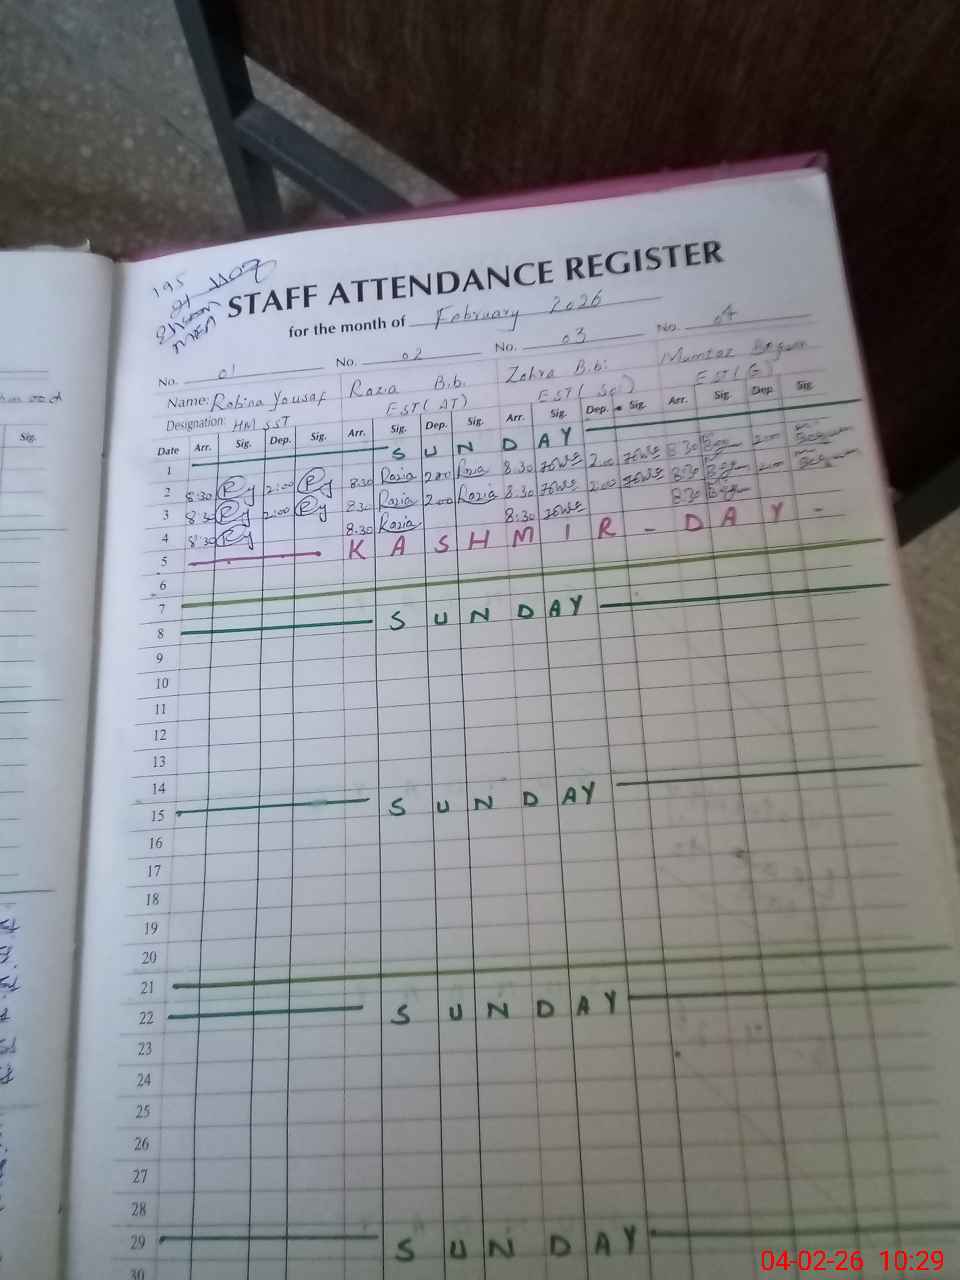 195
STAFF ATTENDANCE REGISTER
for the month of February 2026
No. 01 No. 02 No. 03 No. 04
Name: Robina Yousaf Razia Bibi Zohra Bibi Mumtaz Begum
Designation: HM SST EST(AT) EST(Sc) EST(G)
Date Arr. Sig. Dep. Sig. Arr. Sig. Dep. Sig. Arr. Sig. Dep. Sig. Arr. Sig. Dep. Sig.
1 SUNDAY
2 8:30 Ry 2:00 Ry 8:30 Razia 2:00 Razia 8:30 2:00 8:30 2:00 Begum
3 8:30 Ry 2:00 Ry 8:30 Razia 2:00 Razia 8:30 2:00 8:30 2:00 Begum
4 8:30 Ry 8:30 Razia 8:30 8:30
5 KASHMIR - DAY -
6
7
8 SUNDAY
9
10
11
12
13
14
15 SUNDAY
16
17
18
19
20
21
22 SUNDAY
23
24
25
26
27
28
29 SUNDAY
30
Sig.
04-02-26 10:29